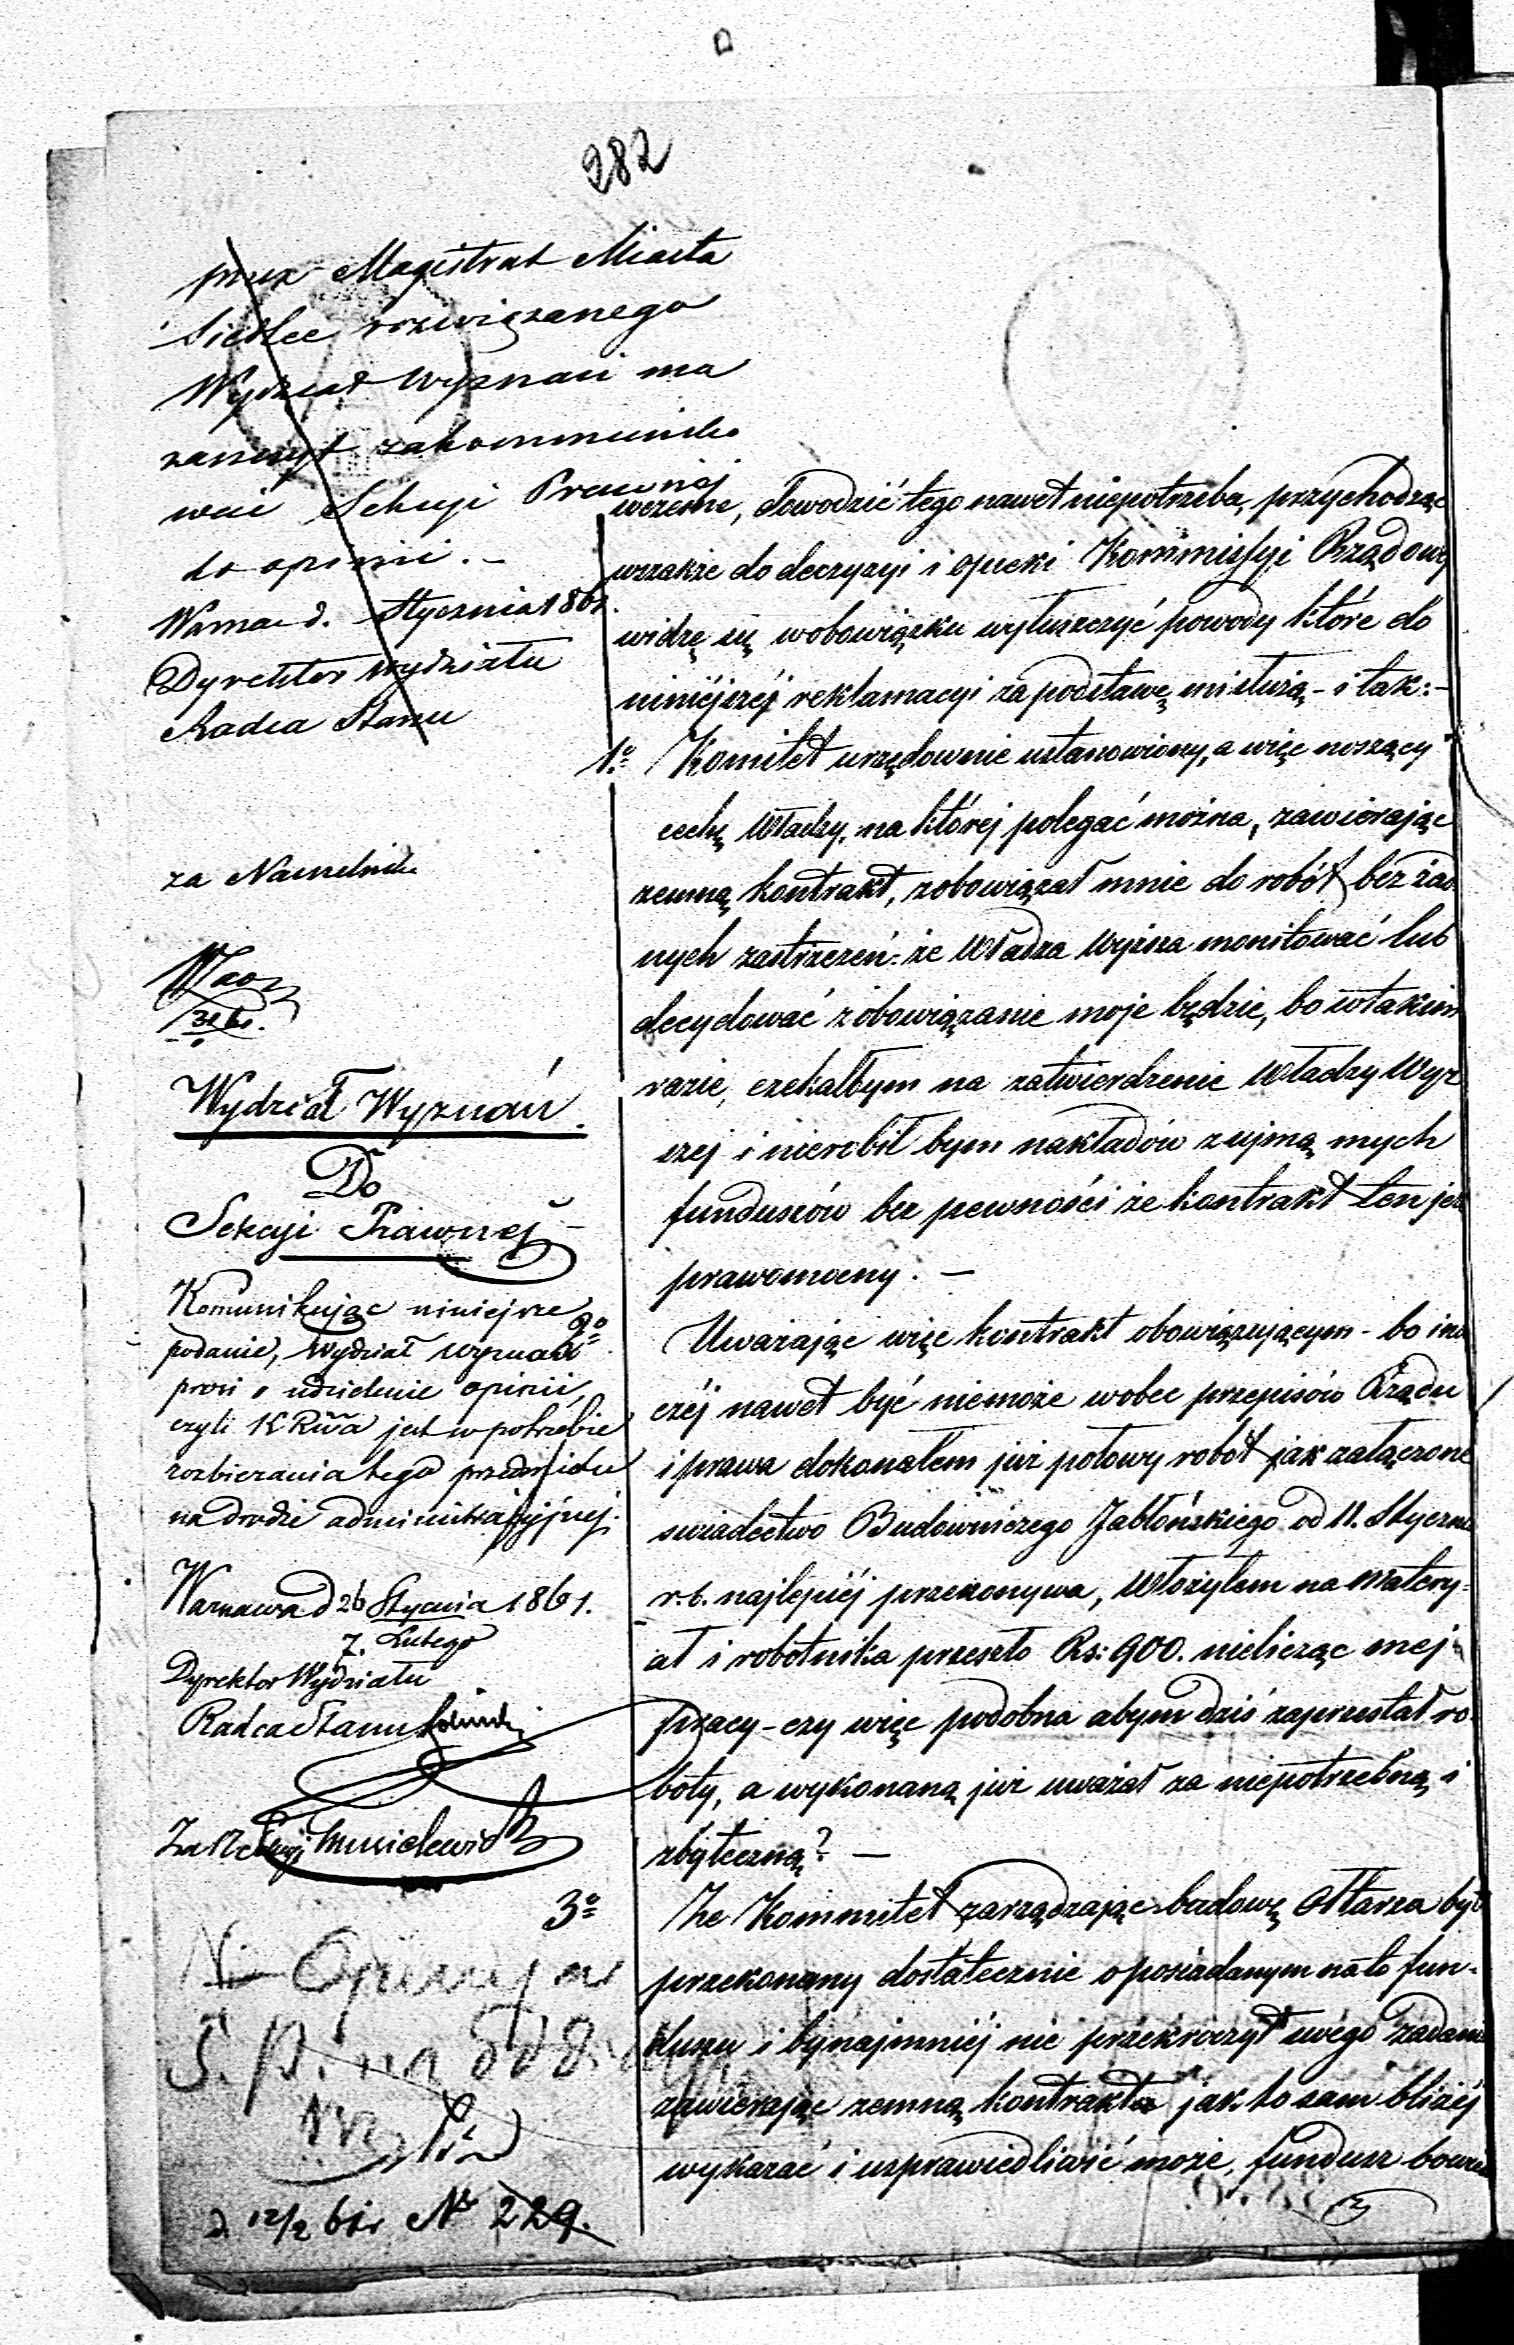 282
przez Magistrat Miasta
Siedlec rozwiązanego
Wydział Wyznań ma
zaszczyt zakommuniko
wać Sekcyi Prawnéj
do opinii. –
Warsza d. Stycznia 1861.
Dyrektor Wydziału
Radca Stanu
za Naczelnika
Wydział Wyznań.
Do
Sekcyi Prawnej –
Komunikując niniejsze
podanie, Wydział Wyznań
prosi o udzielenie opinii,
czyli KRwa jest w potrzebie
rozbierania tego przedmiotu
na drodze administracyjnej.
Warszawa d 26 Stycznia 1861.
7. Lutego
Dyrektor Wydziału
Radca Stanu
Za Sekcyi
d 12/2 61r No 229.
wczesne, dowodzić tego nawet niepotrzeba, przychodząc
wszakże do decyzyi i opieki Kommissyi Rządowej
widzę się w obowiązku wyłuszczyć powody które do
niniéjszéj reklamacyi za podstawę mi służą – i tak: –
1o. Komitet urzędownie ustanowiony, a więc noszący
cechę Władzy, na któréj polegać można, zawiérając
zemną kontrakt, zobowiązał mnie do robót bez żad
nych zastrzeżeń: że Władza Wyższa monitować lub
decydować zobowiązanie moje będzie, bo w takim
razie, czekałbym na zatwierdzenie Władzy Wyż
szej i nierobił bym nakładów z ujmą mych
funduszów bez pewności że kontrakt ten jest
prawomocny. –
2o. Uważając więc kontrakt obowiązującym – bo ina
czéj nawet być niemoże wobec przepisów Rządu
i prawa dokonałem już połowy robót jak załączone
swiadectwo Budowniczego Jabłońskiego od 11. Stycznia
r. b. najlepiéj przekonywa, Włożyłem na Matery=
ał i robotnika przeszło Rs: 900. nielicząc mej
pracy – czy więc podobna abym dziś zaprzestał ro
boty, a wykonaną już uważał za niepotrzebną i
zbyteczną? –
3o. Że Kommitet zarządzając budowę Ołtarza był
przekonany dostatecznie o posiadanym na to fun=
duszu i bynajmniéj nie przekroczył swego zadania
zawierając zemną kontrakta jak to sam bliżéj
wykazać i usprawiedliwić może, fundusz bowiem